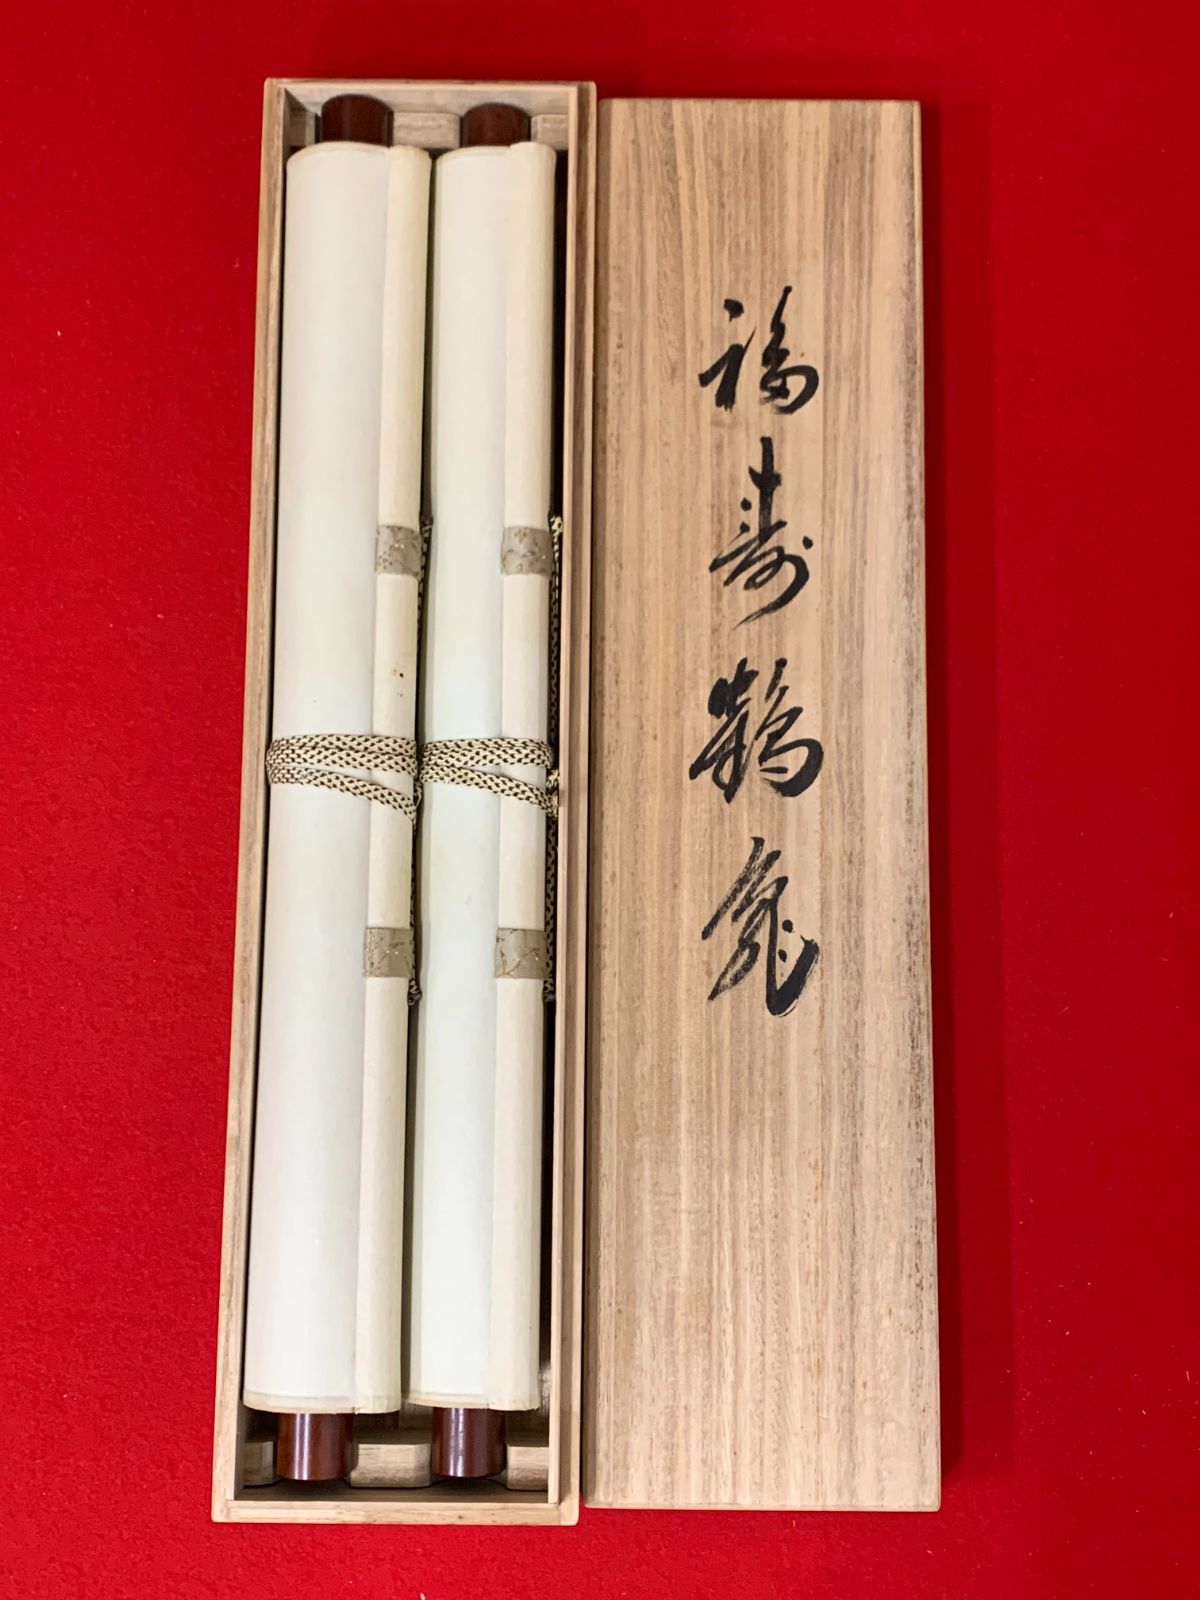 福寿鶴亀